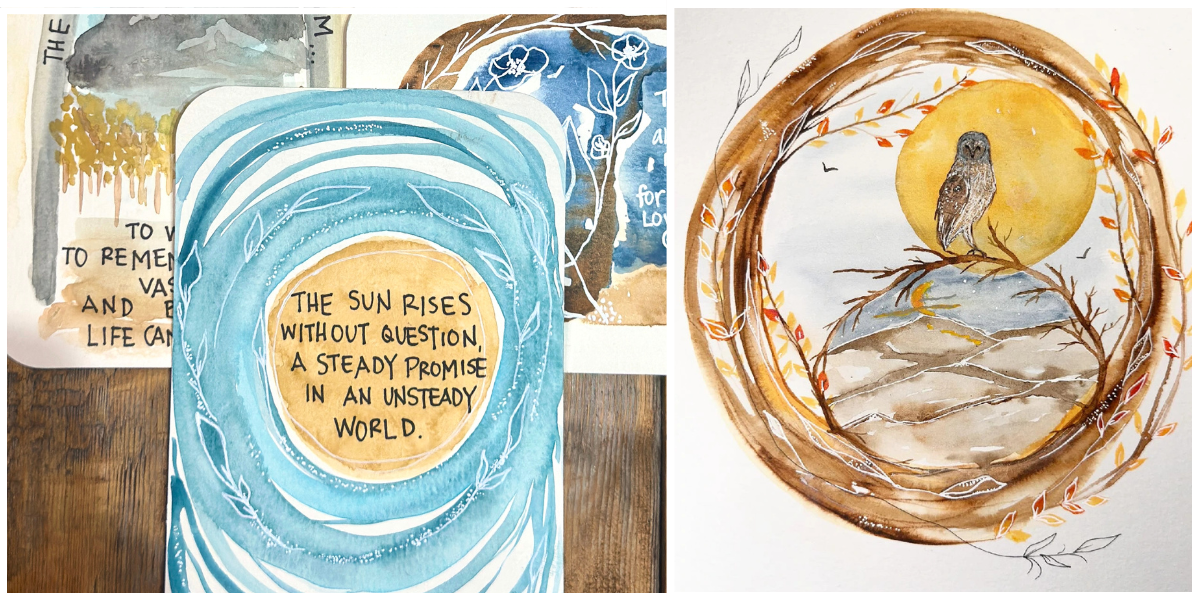 THE
M...
TO
TO REMEM
VAS
AND
LIFE CAN
THE SUN RISES
WITHOUT QUESTION,
A STEADY PROMISE
IN AN UNSTEADY
WORLD.
for